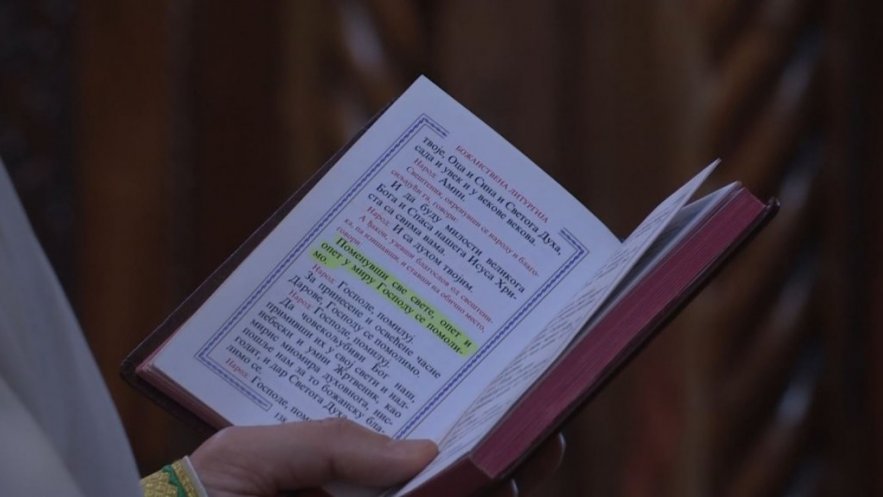 БОЖАНСТВЕНА ЛИТУРГИЈА
твоје, Оца и Сина и Светога Духа,
сада и увек и у векове векова
Народ: Амин.
Свештеник, окренувши се народу и благо-
сиљајући га, говори:
И да буду милости великога
Бога и Спаса нашега Исуса Хри-
ста са свима вама.
Народ: И са духом твојим.
А ђакон, узевши благослов од свештени-
ка, па изишавши и ставши на обично место,
говори:
Поменувши све свете, опет и
опет у миру Господу се помоли-
мо.
Народ: Господе, помилуј.
За принесене и освећене часне
Дарове, Господу се помолимо.
Народ: Господе, помилуј.
Да човекољубиви Бог наш,
примивши их у свој свети и над-
небески и умни Жртвеник, као
мирис миомира духовнога, нис-
пошље нам за то божанску бла-
годат, и дар Светога Духа,
лимо се.
Народ: Господе, пом
138